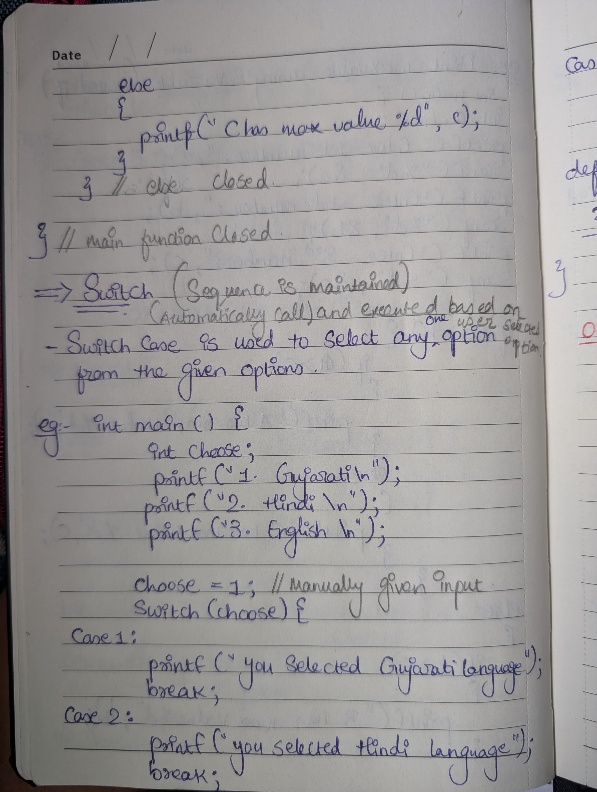 Date / /
else
{
printf(" C has max value %d", c);
}
} // else closed
} // main function closed.
=> Switch (Sequence is maintained)
(Automatically call) and executed based on user selected option
- Switch Case is used to Select any one option
from the given options.
eg:- int main () {
int choose;
printf ("1. Gujarati \n");
printf ("2. Hindi \n");
printf ("3. English \n");
choose = 1; // Manually given input
Switch (choose) {
Case 1:
printf (" you Selected Gujarati language");
break;
Case 2:
printf (" you selected Hindi language");
break;
Cas
def
}